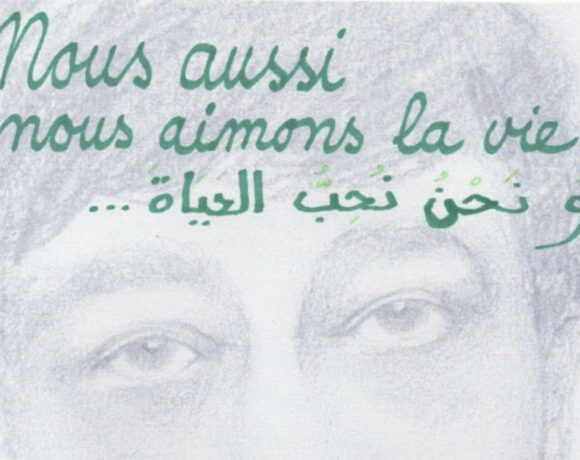 Nous aussi
nous aimons la vie
و نَحْنُ نُحِبُّ الحَيَاةَ ...